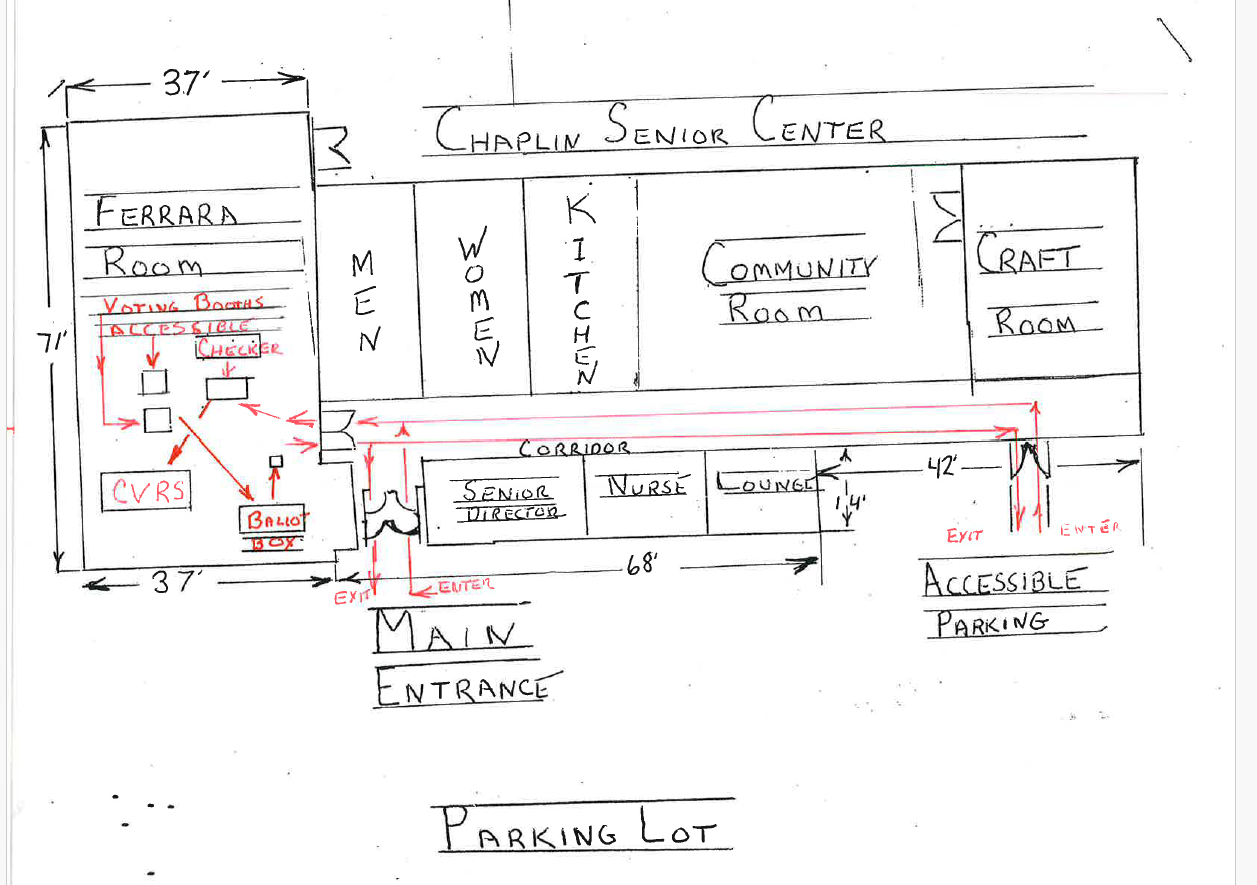 37'
CHAPLIN SENIOR CENTER
FERRARA
ROOM
VOTING BOOTHS
ACCESSIBLE
CHECKER
71'
MEN
WOMEN
KITCHEN
COMMUNITY
ROOM
CRAFT
ROOM
CORRIDOR
CVRS
BALLOT
BOX
SENIOR
DIRECTOR
NURSE
LOUNGE
14'
42'
EXIT
ENTER
37'
68'
EXIT
ENTER
MAIN
ENTRANCE
ACCESSIBLE
PARKING
PARKING LOT